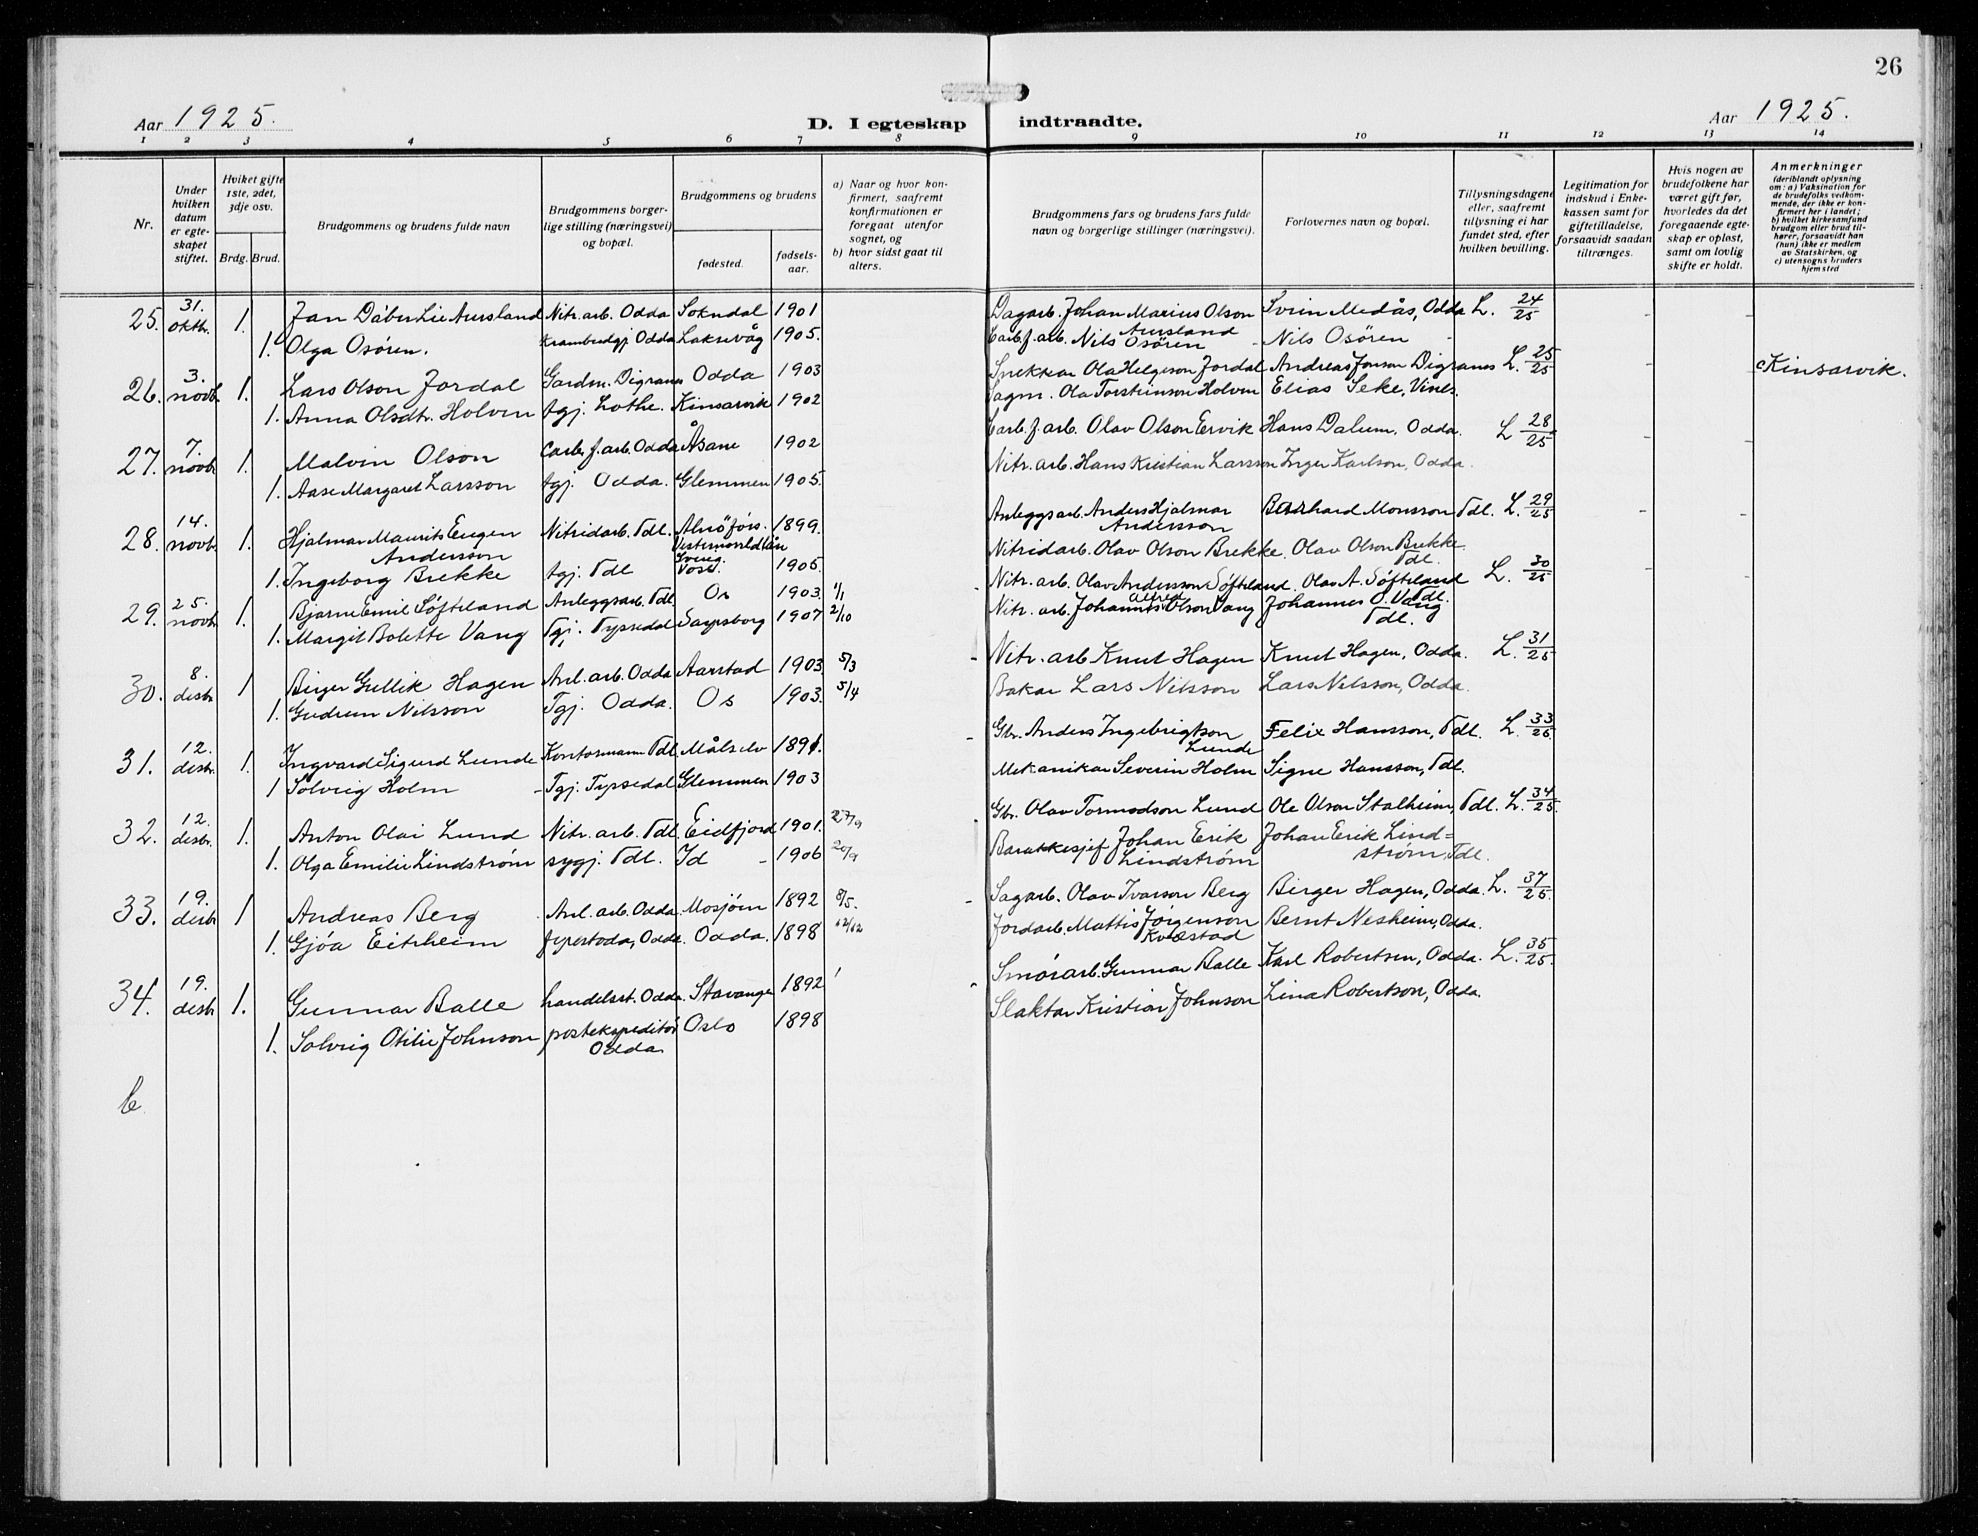 26
Aar 1925.
D. I egteskap indtraadte.
Aar 1925.
1 2 3 4 5 6 7 8 9 10 11 12 13 14
Nr.
Under hvilken datum er egteskapet stiftet.
Hviket gifte 1ste, 2det, 3dje osv.
Brdg. Brud.
Brudgommens og brudens fulde navn
Brudgommens borgerlige stilling (næringsvei) og bopæl.
Brudgommens og brudens
fødested.
fødselsaar.
a) Naar og hvor konfirmert, saafremt konfirmationen er foregaat utenfor sognet, og
b) hvor sidst gaat til alters.
Brudgommens fars og brudens fars fulde navn og borgerlige stillinger (næringsvei).
Forlovernes navn og bopæl.
Tillysningsdagene eller, saafremt tillysning ei har fundet sted, efter hvilken bevilling.
Legitimation for indskud i Enkekassen samt for giftetilladelse, forsaavidt saadan tiltrænges.
Hvis nogen av brudefolkene har været gift før, hvorledes da det foregaaende egteskap er opløst, samt om lovlig skifte er holdt.
Anmerkninger
(deriblandt oplysning om: a) Vaksination for de brudefolks vedkommende, der ikke er konfirmert her i landet; b) hvilket kirkesamfund brudgom eller brud tilhører, forsaavidt han (hun) ikke er medlem av Statskirken, og c) utensogns bruders hjemsted
25. 31. oktbr. 1. Jan Däber Lie Aursland Nitr. arb. Odda Sokndal 1901 Dagarb. Johan Marius Olson Aursland Svein Medås, Odda L. 24/25
1. Olga Osören. Krambudgj Odda Laksevåg 1905. Carb. f. arb. Nils Osören - Nils Osören -
26. 3. novb. 1. Lars Olson Jordal Gardm. Digranes Odda 1903 Snekkar Ola Helgeson Jordal Andreas Jonson Digranes L. 25/25 c Kinsarvik.
1. Anna Olsdtr. Holven tgj. Lothe. Kinsarvik 1902 Sagm. Ola Torsteinson Holven Elias Seke, Vines.
27. 7. novb. 1. Malvin Olson Carb. f. arb. Odda Åsane 1902 Carb. f. arb. Olav Olson Ervik Hans Dalum, Odda. L 28/25
1. Aase Margaret Larsson tgj. Odda. Glemmen 1905. Nitr. arb. Hans Kristian Larsson Inger Karlson, Odda.
28. 14. novb. 1. Hjalmar Maurits Eugen Andersson Nitridarb. Tdl. Alnöfors. Vesternorrldlän 1899. Anleggsarb. Anders Hjalmar Andersson Bernhard Monsson Tdl. L. 29/25
1. Ingeborg Brekke tgj. Tdl Voss. 1905. Nitridarb. Olav Olson Brekke. Olav Olson Brekke Tdl.
29. 25. novb. 1. Bjarne Emil Söfteland Anleggsarb. Tdl. Os 1903. 1/1 Nitr. arb. Olav Andersson Söfteland. Olav A. Söfteland Tdl. L. 30/25
1. Margit Bolette Vang Tgj. Tyssedal Sarpsborg 1907 2/10 Nitr. arb. Johannes Alfred Olson Vang Johannes O. Vang Tdl.
30. 8. desbr 1 Birger Gullik Hagen Anl. arb. Odda Aarstad 1903 5/3 Nitr. arb Knut Hagen Knut Hagen, Odda. L. 31/25
1. Gudrun Nilsson Tgj. Odda. Os 1903. 5/4 Bakar Lars Nilsson Lars Nilsson, Odda.
31. 12. desbr. 1. Ingvard Sigurd Lunde Kontormann Tdl. Målselv 1891. Gbr. Anders Ingebrigtson Lunde Felix Hansson, Tdl. L. 33/25
1 Solveig Holm - Tgj. Tyssedal Glemmen 1903 Mekanikar Severin Holm Signe Hansson, Tdl.
32. 12. desbr. 1. Anton Olai Lund Nitr. arb. Tdl. Eidfjord 1901. 27/9 Gbr. Olav Tormodson Lund Ole Olson Stalheim, Tdl. L. 34/25.
1. Olga Emilie Lindström sygj. Tdl. Id - 1906 20/9 Barakkesjef Johan Erik Lindström Johan Erik Lind=ström, Tdl.
33. 19. desbr 1 Andreas Berg Anl. arb. Odda. Mosjöen 1892 8/5. Sagarb. Olav Ivarson Berg Birger Hagen, Odda. L. 37/25
1. Gjöa Eitrheim Odda. Odda. 1898 Jordarb. Mattis Jörgenson Kvæstad Bernt Nesheim, Odda.
34. 19. desbr 1. Gunnar Balle handelsst. Odda. Stavanger 1892 Smörarb. Gunnar Balle Karl Robertsen, Odda. L. 35/25.
1. Solveig Otilie Johnson postekspeditör Odda. Oslo 1898 Slaktar Kristian Johnson Lina Robertson, Odda.